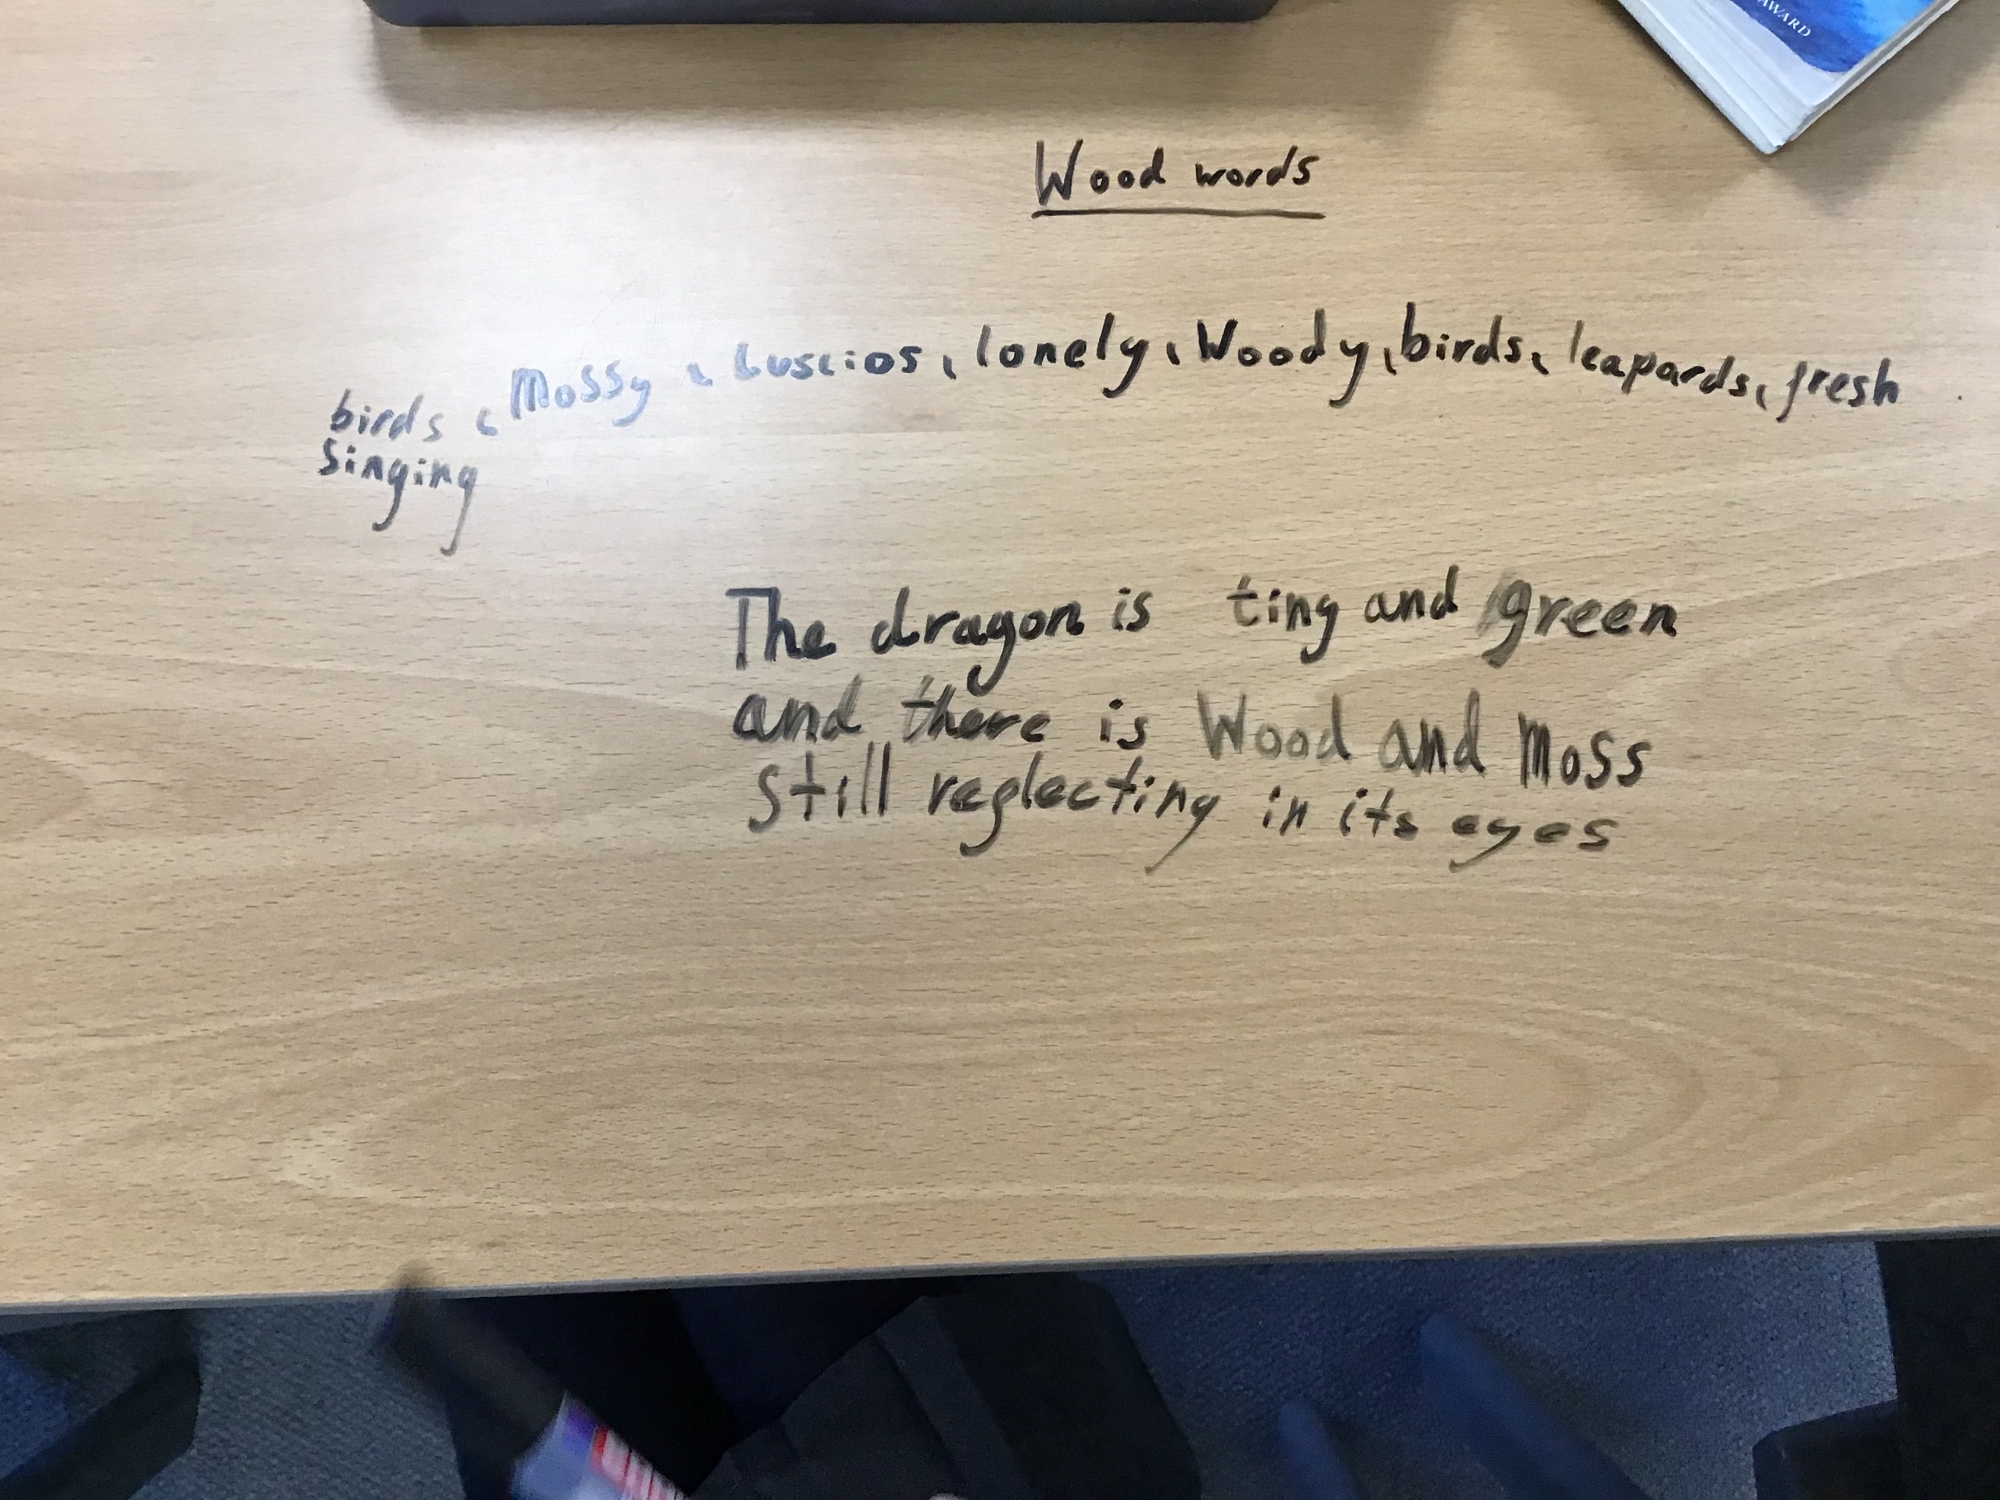 AWARD
Wood words
birds, Mossy, Luscios, lonely, Woody, birds, leapards, fresh
singing
The dragon is ting and green
and there is Wood and Moss
still reglecting in its eyes